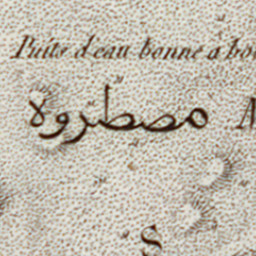 Puits d'eau bonne a bo
مصطروه
S